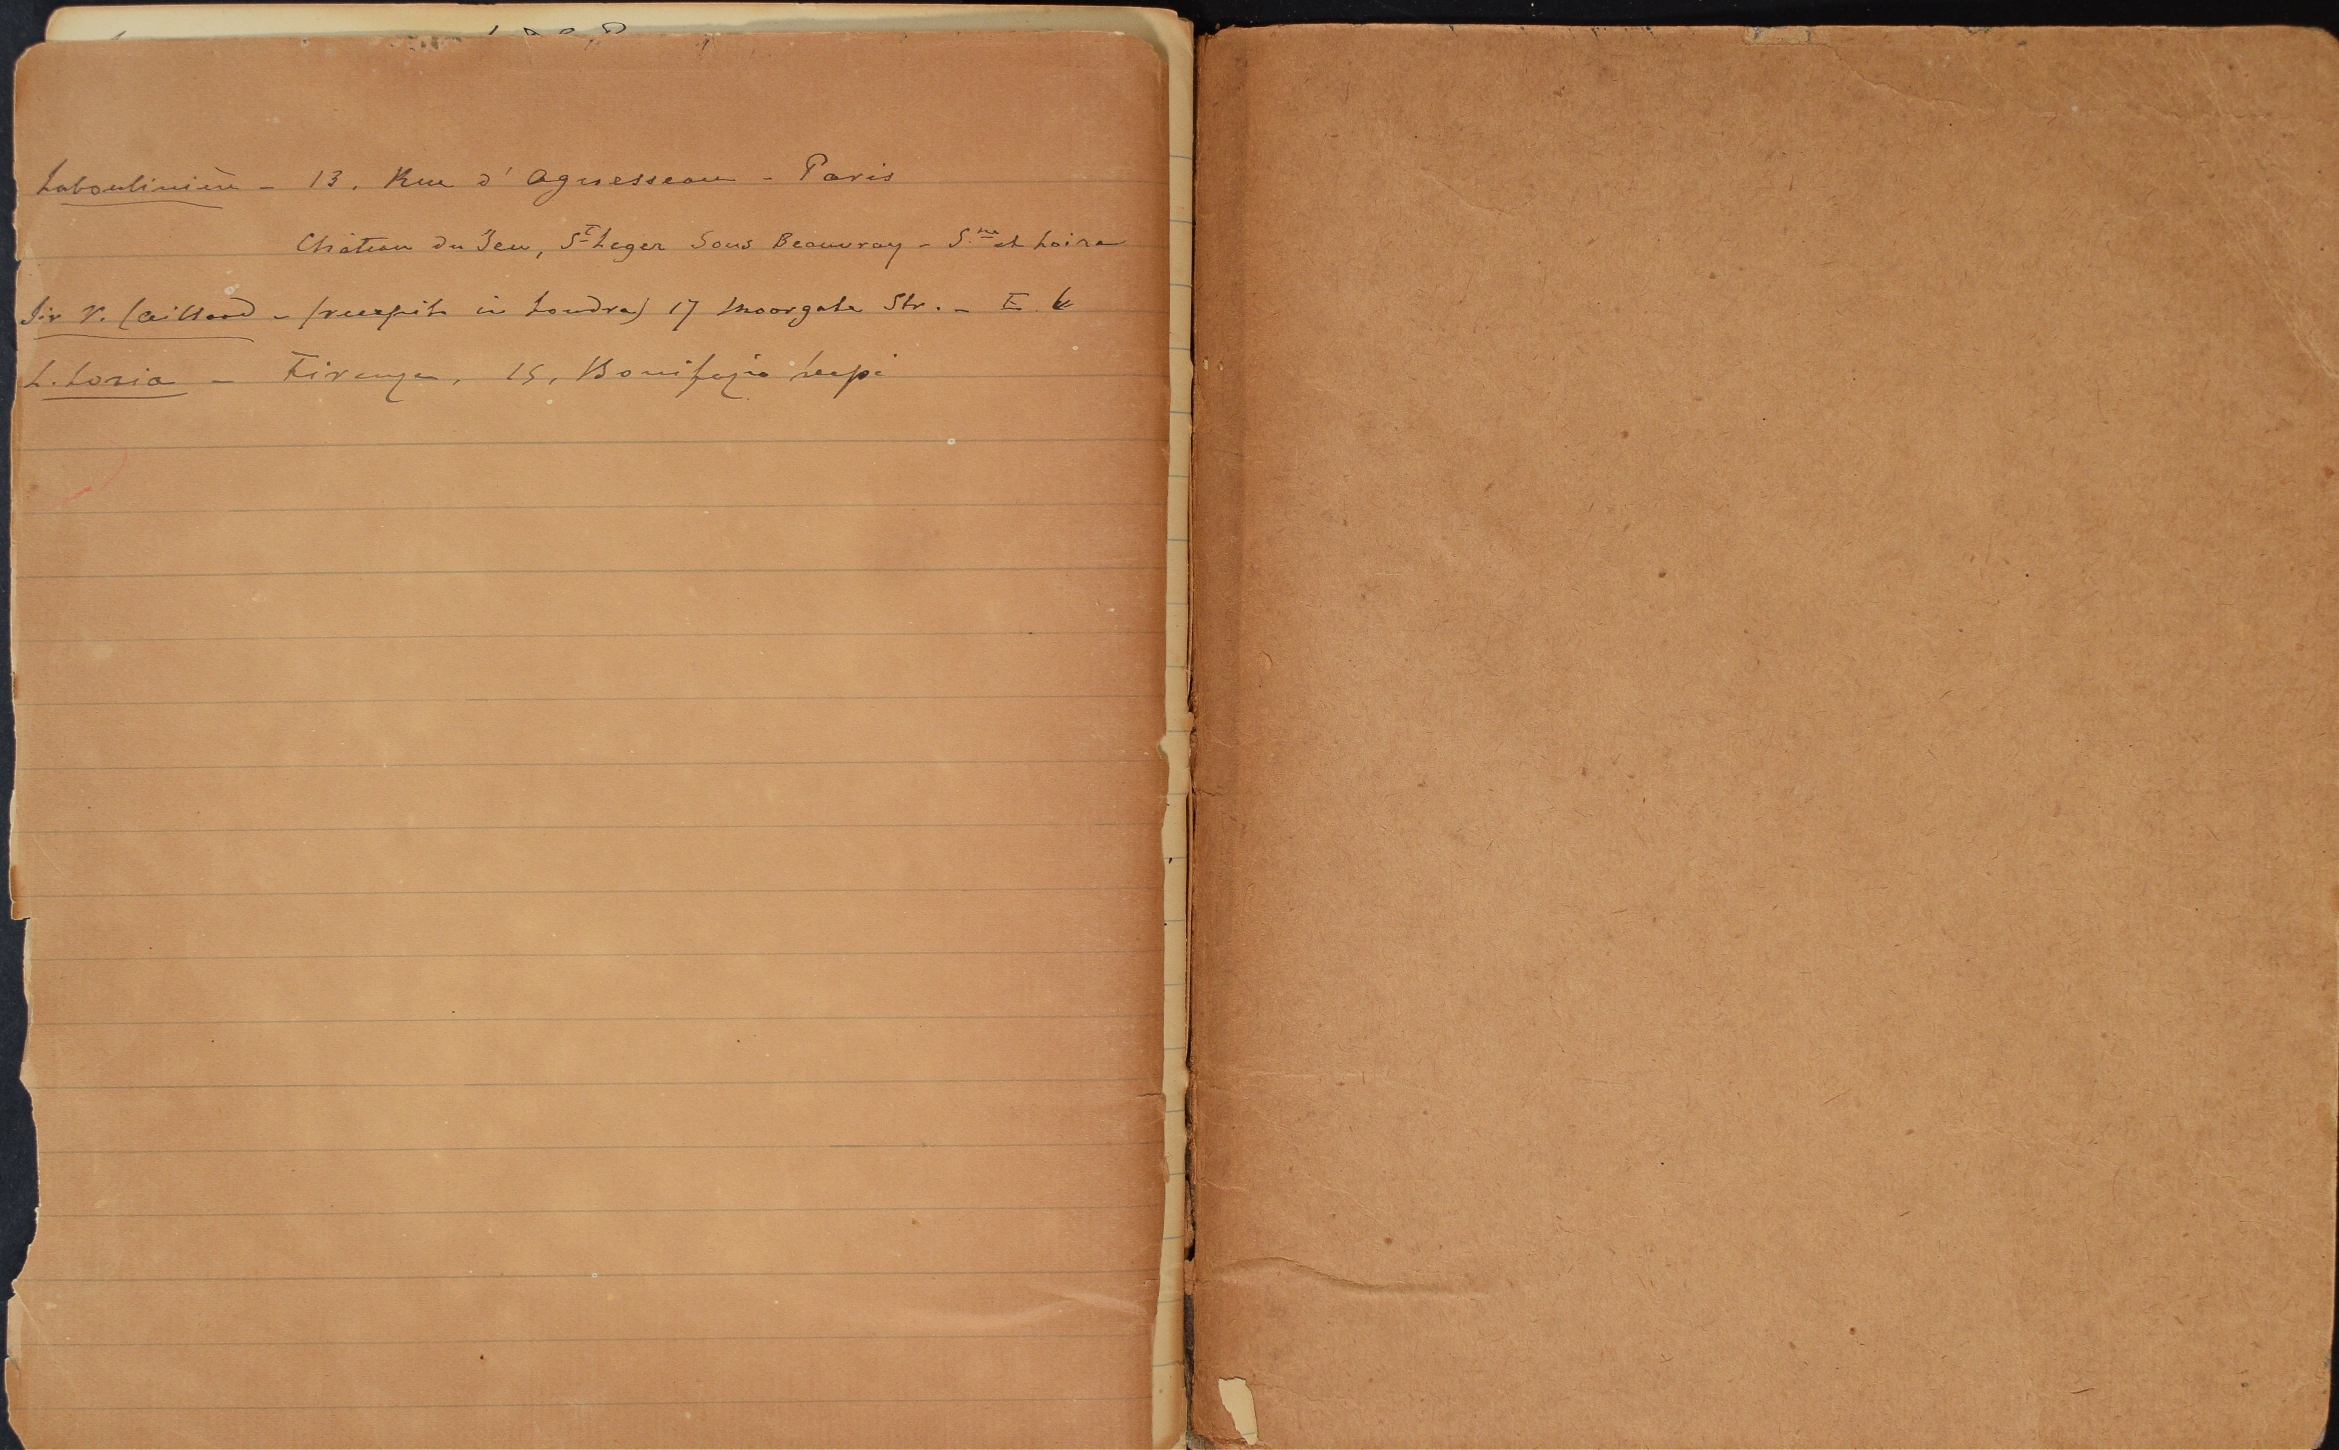 Laboulinière - 13. Rue d'Aguesseau - Paris
Château du Jeu, St Leger Sous Beauvray - Sne et Loire
Sir V. Caillard - (recapito in Londra) 17 Moorgate Str. - E.
L. Loria - Firenze, 15, Bonifazio Lupi